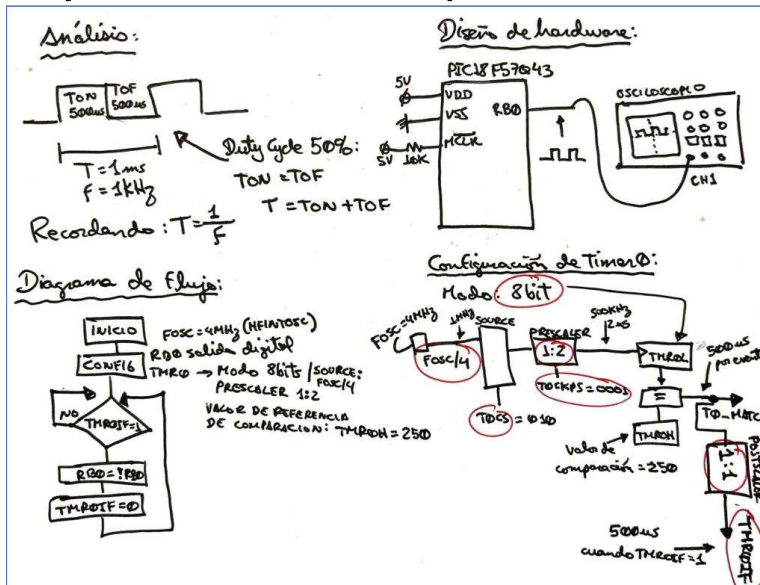 Análisis:
TON
500us
TOF
500us
T=1ms
f=1KHz
Duty Cycle 50%:
TON=TOF
T=TON+TOF
Recordando: T=1/f
Diseño de hardware:
PIC18F57Q43
5V
VDD
VSS
MCLR
5V
10K
RB0
OSCILOSCOPIO
CH1
Diagrama de Flujo:
INICIO
CONFIG
NO
TMR0IF=1
RB0=!RB0
TMR0IF=0
FOSC=4MHz (HFINTOSC)
RB0 salida digital
TMR0 → Modo 8bits / SOURCE: FOSC/4
PRESCALER 1:2
VALOR DE REFERENCIA
DE COMPARACION: TMR0H=250
Configuración de Timer0:
Modo: 8bit
FOSC=4MHz
FOSC/4
1MHz
SOURCE
T0CS=010
PRESCALER
1:2
T0CKPS=0001
500KHz
2us
TMR0L
=
TMR0H
Valor de
comparación=250
500us
por evento
T0_MATC
1:1
POSTSCALER
TMR0IF
500us
cuando TMR0IF=1